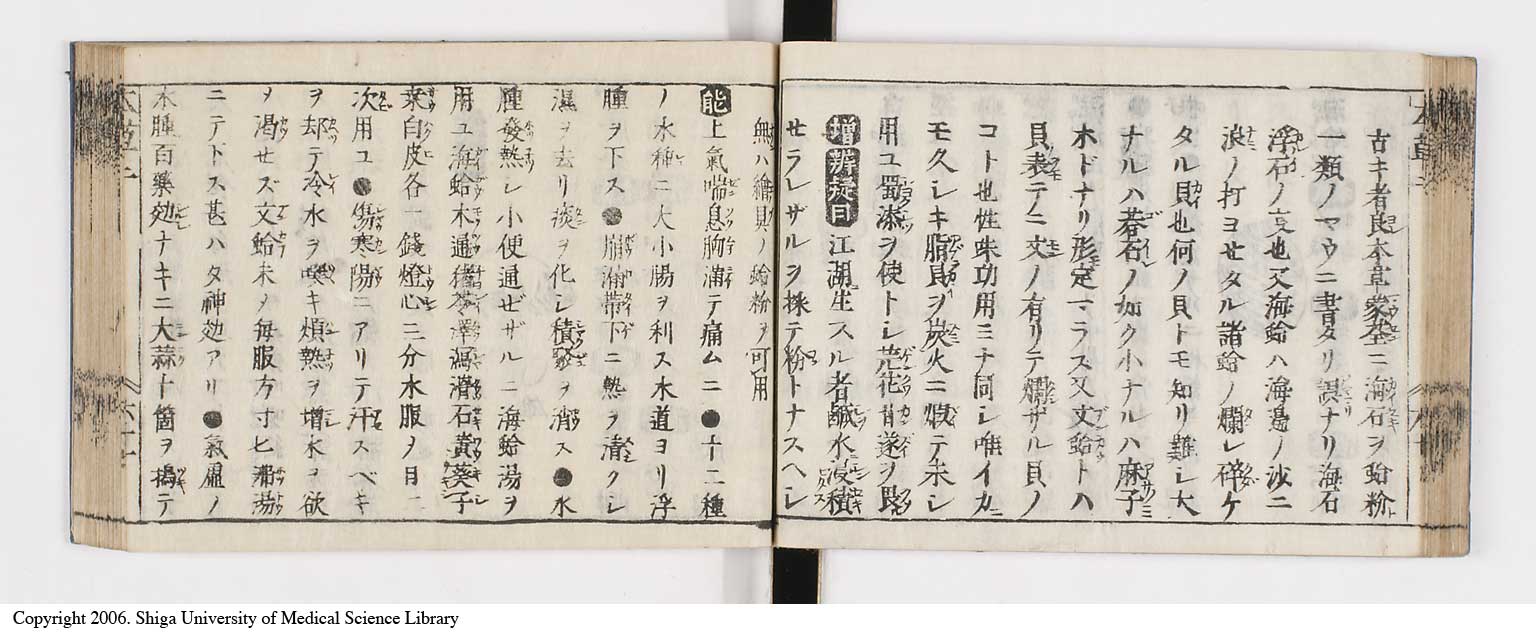 古キ者良本草蒙筌ニ海石ヲ蛤粉
一類ノマウニ書タリ誤ナリ海石
浮石ノ也又海蛤ハ海邉ノ沙ニ
浪ノ打ヨセタル諸蛤ノ爛レ碎ケ
タル貝也何ノ貝トモ知リ難レ大
ナルハ碁石ノ如ク小ナルハ麻子
ホドナリ形定マラス又文蛤トハ
貝表テニ文ノ有リテ爛ザル貝ノ
コト也性味功用ミナ同レ唯イカ
モ久レキ貝ヲ炭火ニ煅テ未レ
用ユ蜀漆ヲ使トレ芫花甘遂ヲ畏
増辨莛曰 江湖生スル者鹹水浸積
セラレザルヲ採テ粉トナスヘレ
無ハ繪貝ノ蛤粉ヲ可用
能 上氣喘息胸滿テ痛ムニ●十二種
ノ水種ニ大小腸ヲ利ス水道ヨリ浮
腫ヲ下ス●崩漏帶下ニ熱ヲ清クレ
濕ヲ去リ痰ヲ化レ積ヲ消ス●水
腫發熱レ小便通ゼザルニ海蛤湯ヲ
用ユ海蛤木通猪苓澤瀉滑石黄葵子
桒白皮各一錢燈心三分水服ノ日二
次用ユ●傷寒陽ニアリテ汗スベキ
ヲ却テ冷水ヲ噀キ煩熱ヲ増水ヲ欲
ヲ渇セズ文蛤末ノ毎服方寸匕沸湯
ニテ下ス甚ハタ神効アリ●氣虚ノ
水腫百藥効ナキニ大蒜十箇ヲ搗テ
Copyright 2006. Shiga University of Medical Science Library